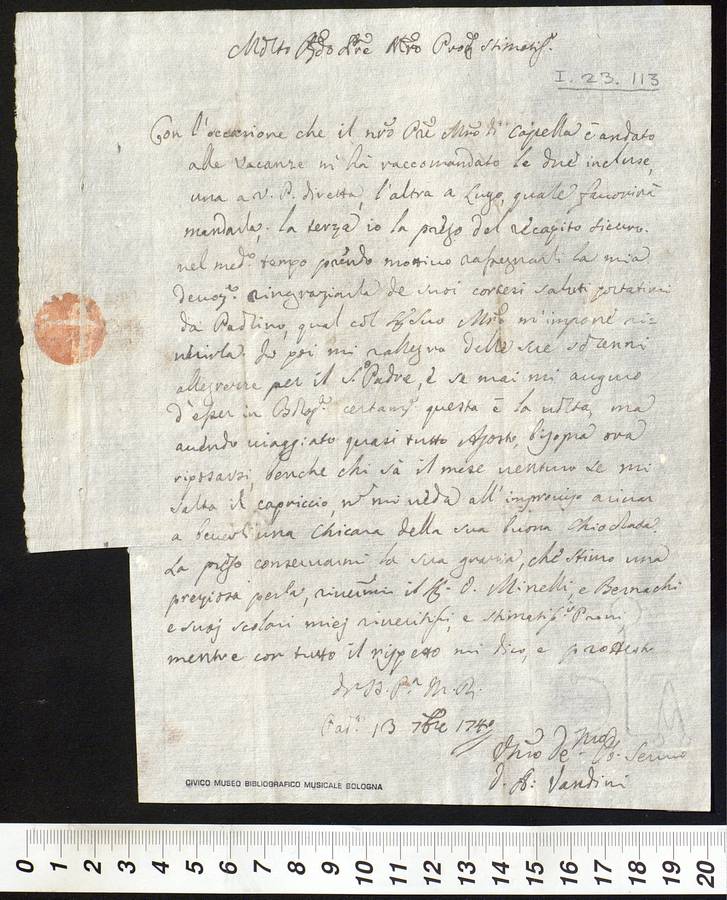 Molto Rdo Pre Mro Pron Stimatis.
I. 23. 113
Con l'occasione che il nro Pre Mro di Capella è andato
alle vacanze m'hà raccomandato le due incluse,
una a V. P. diretta, l'altra a Lugo, quale favorirà
mandarla; la terza io la prego del recapito sicuro.
nel medo tempo prendo mottivo rassegnarli la mia
devoze ringraziarla de suoi cortesi saluti portatimi
da Paolino, qual col Suo Mro m'impone
riverirla. Io poi mi rallegro delle sue
allegrezze per il So Padre, e se mai mi auguro
d'esser in Bologa certame questa è la volta, ma
avendo viaggiato quasi tutto Agosto, bisogna ora
riposarsi, benche chi sà il mese venturo se mi
salta il capriccio, no mi veda all'improviso arivar
a beverli una Chicara della sua buona Chiocolata
La prego conservarmi la sua grazia, che stimo una
preziosa perla, riverirmi il Sig. D. Minelli, e Bernachi
e suoj scolari miej riveriti, e stimatissi Proni
mentre con tutto il rispetto mi dico, e protesto
Di V. P. M. R.
Pada 13 7bre 1749
Devmo Ob. Servo
D. A: Vandini
CIVICO MUSEO BIBLIOGRAFICO MUSICALE BOLOGNA
0 1 2 3 4 5 6 7 8 9 10 11 12 13 14 15 16 17 18 19 20